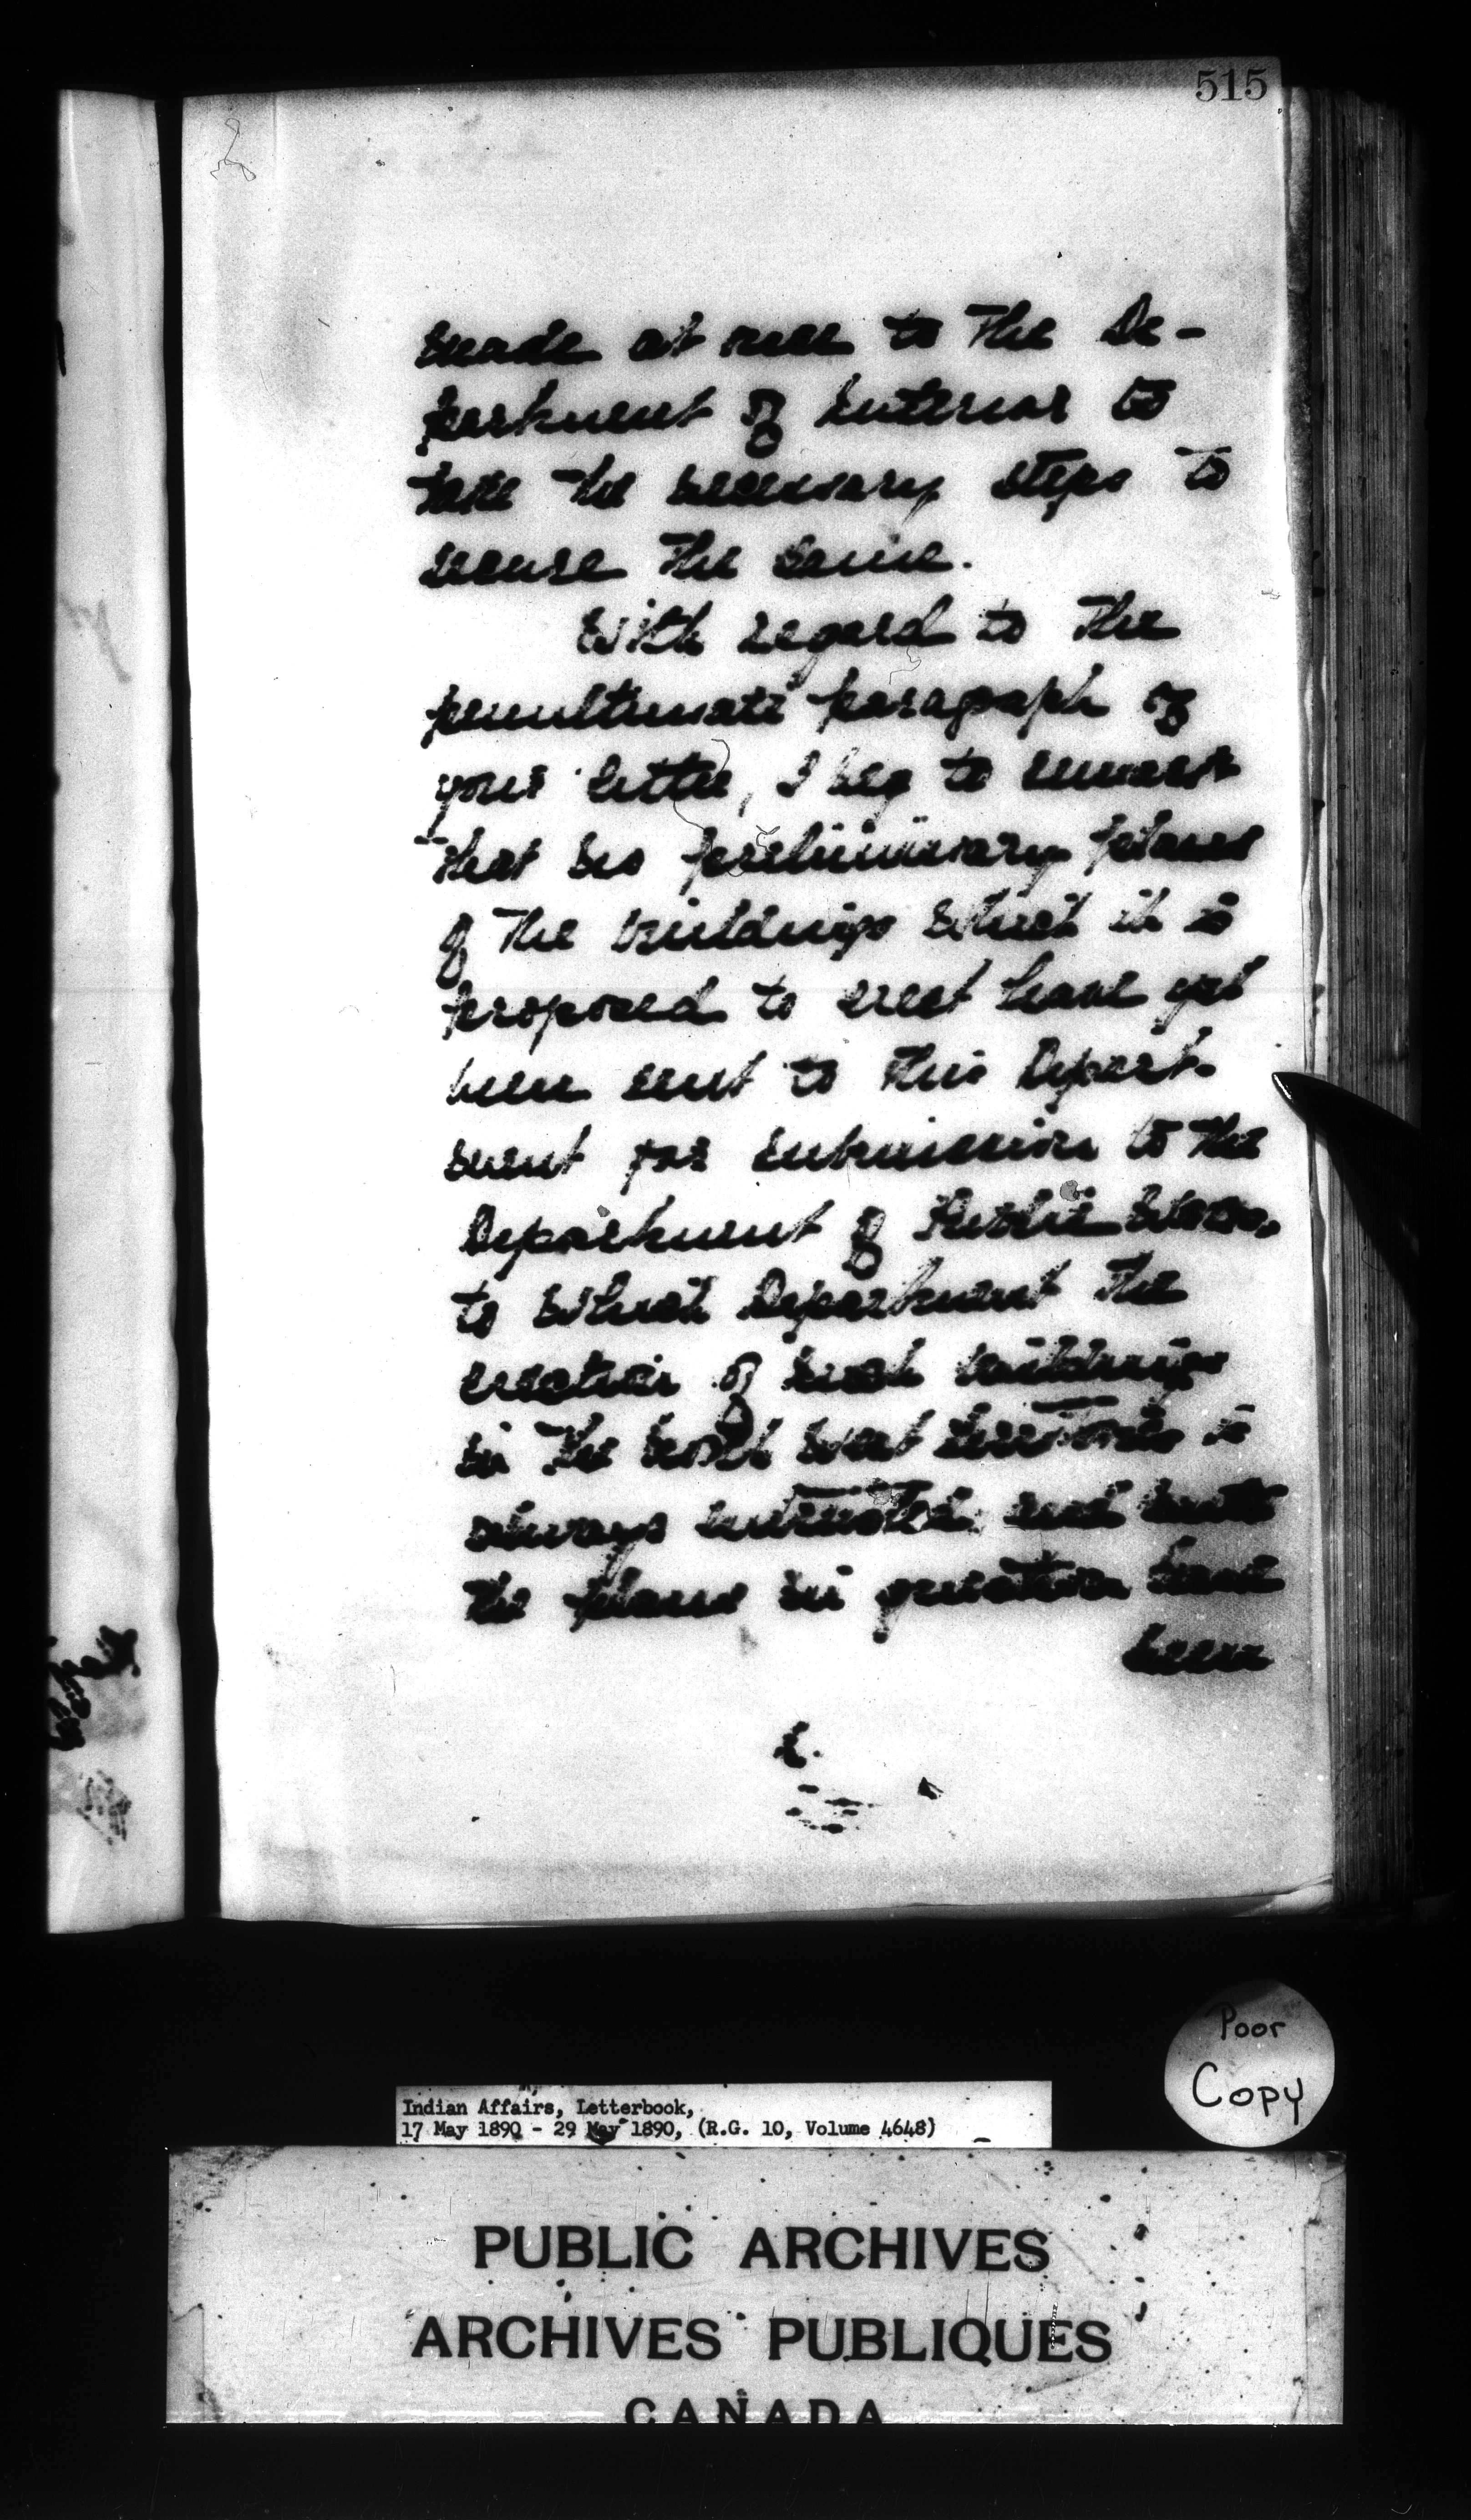 515
made at once to the De-
partment of Interior to
take the necessary steps to
secure the same.
With regard to the
penultimate paragraph of
your letter, I beg to remark
that no preliminary plans
of the buildings which it is
proposed to erect have yet
been sent to this Depart-
ment for submission to the
Department of Public Works,
to which Department the
erection of such buildings
in the North West Territories is
always intrusted, and until
the plans in question have
been
Poor
Copy
Indian Affairs, Letterbook,
17 May 1890 - 29 May 1890, (R.G. 10, Volume 4648)
PUBLIC ARCHIVES
ARCHIVES PUBLIQUES
CANADA